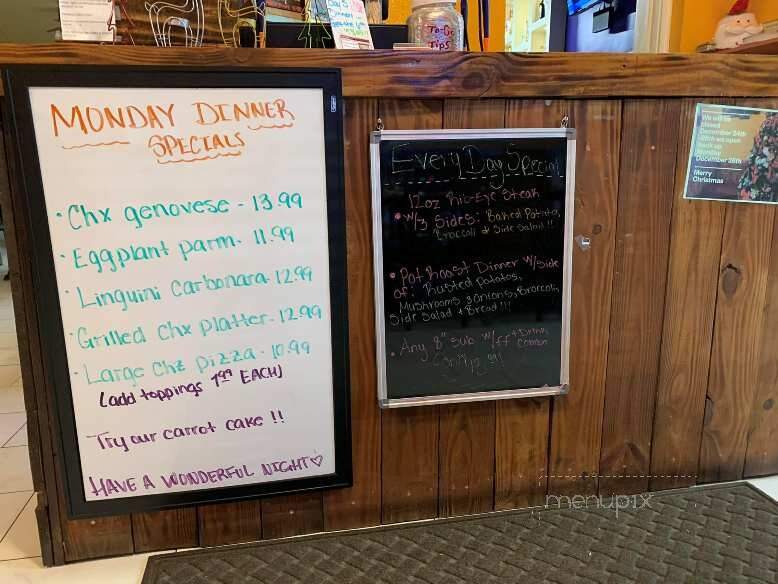 MONDAY DINNER
SPECIALS
• Chx genovese - 13.99
• Eggplant parm. 11.99
• Linguini Carbonara 12.99
• Grilled chx platter. 12.99
• Large Chz pizza - 10.99
(add toppings 1.99 EACH)
Try our carrot cake !!
HAVE A WONDERFUL NIGHT♡
Every Day Special
12oz Rib-Eye Steak
• w/3 Sides: Baked Potato,
Broccoli & Side Salad !!
• Pot Roast Dinner w/side
of: Rusted Potatos,
Mushrooms & onions, Broccoli,
Side Salad + Bread !!!
• Any 8" Sub w/ff + Drink
Combo
Only 12.99!
To-Go
Tips
We will be
closed
December 24th
December 26th
Merry
Christmas
menupix